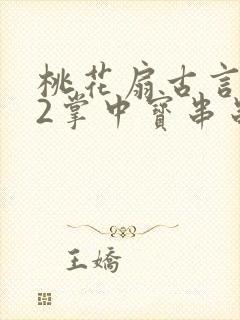 桃花扇古言
2掌中寶串
王嬌